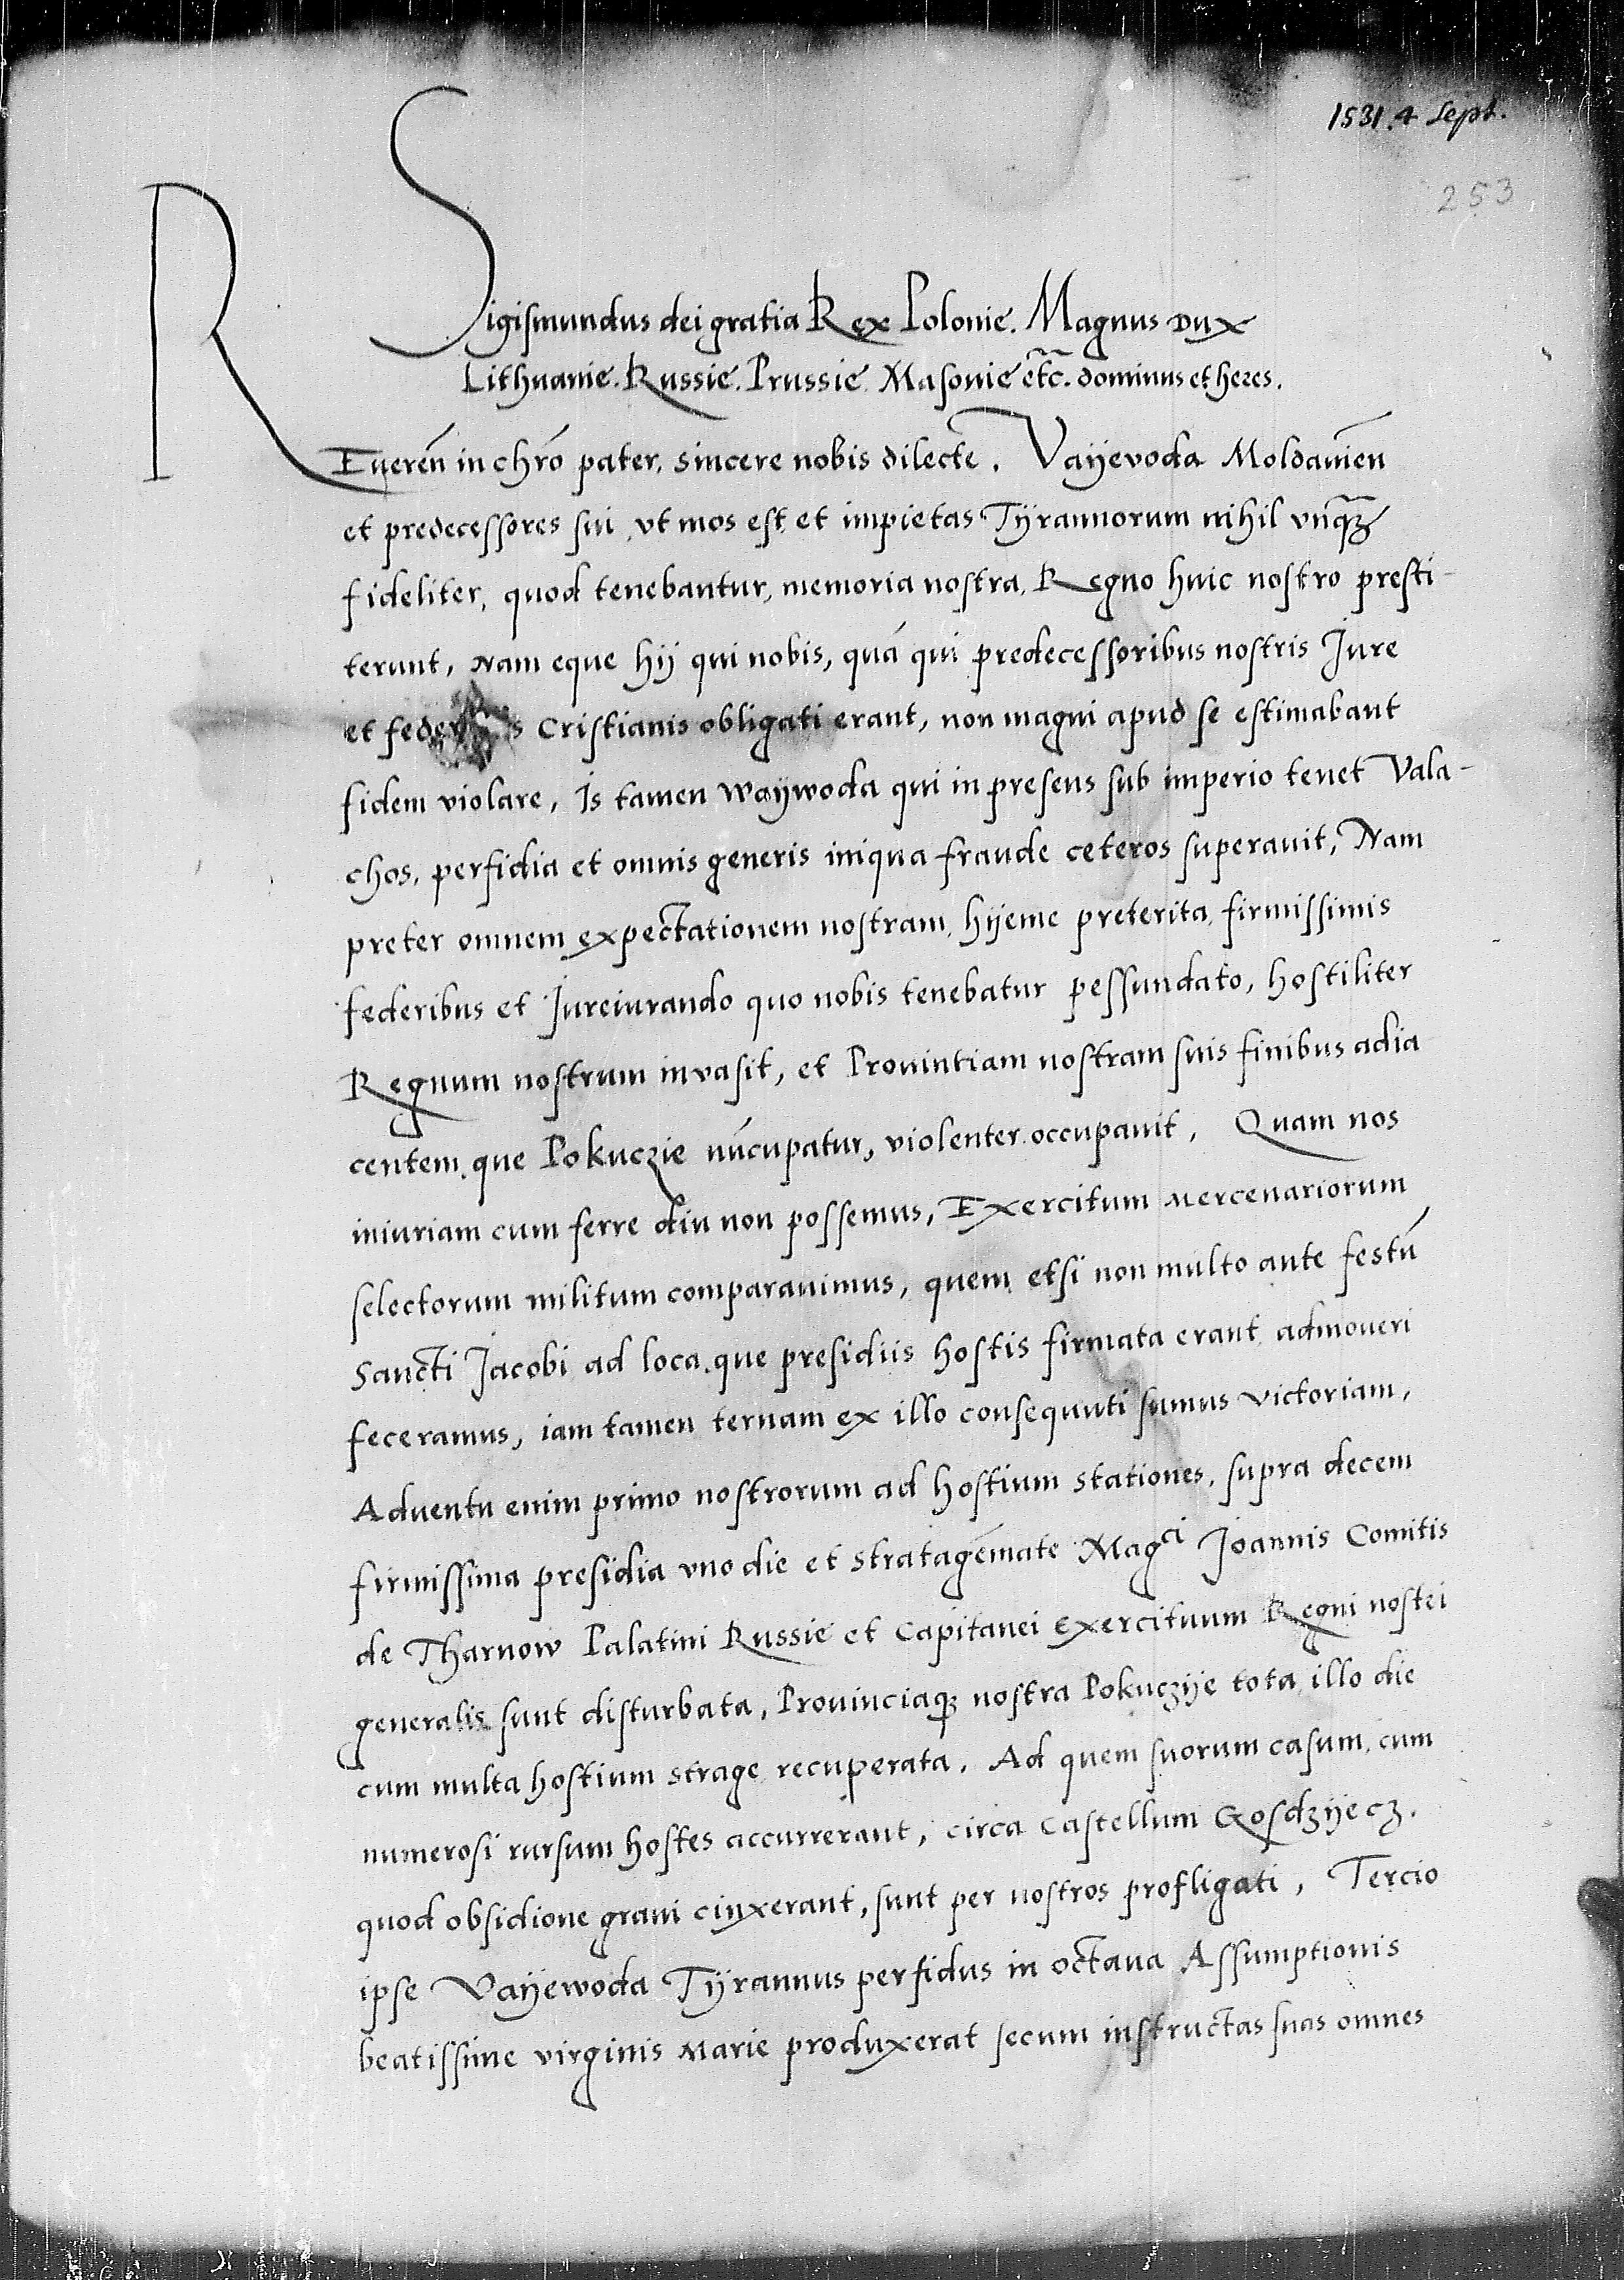 1531. 4 Sept.
253
Sigismundus dei gratia Rex Polonie. Magnus Dux
Lithuanie. Russie. Prussie. Masovie etc̃. dominus et heres.
REueren̄ in chr̄o pater, sincere nobis dilecte. Vayevoda Moldavien̄
et predecessores sui, vt mos est et impietas Tÿrannorum nihil vnq̃ꝫ
fideliter, quod tenebantur, memoria nostra, Regno huic nostro presti-
terunt, nam eque hij qui nobis, quā qui predecessoribus nostris Jure
et Cristianis obligati erant, non magni apud se estimabant
fidem violare, Is tamen Waÿwoda qui in presens sub imperio tenet Vala-
chos, perfidia et omnis generis iniqua fraude ceteros superauit, Nam
preter omnem expectationem nostram, hÿeme preterita, firmissimis
federibus et Jureiurando quo nobis tenebatur pessundato, hostiliter
Regnum nostrum invasit, et Prouintiam nostram suis finibus adia
centem, que Pokuczie nūcupatur, violenter occupauit, Quam nos
iniuriam cum ferre diu non possemus, Exercitum mercenariorum
selectorum militum comparauimus, quem etsi non multo ante festū
Sancti Jacobi ad loca, que presidiis hostis firmata erant admoueri
feceramus, iam tamen ternam ex illo consequuti sumus victoriam,
Aduentu enim primo nostrorum ad hostium stationes, supra decem
firmissima presidia vno die et stratagēmate Magci Joannis Comitis
de Tharnow Palatini Russie et Capitanei exercituum Regni nostri
generalis sunt disturbata, Prouinciaqꝫ nostra Pokuczÿe tota illo die
cum multa hostium strage recuperata. Ad quem suorum casum, cum
numerosi rursum hostes accurrerant, circa Castellum Gosdzÿecz.
quod obsidione graui cinxerant, sunt per nostros profligati, Tercio
ipse Vaÿewoda Tÿrannus perfidus in octaua Assumptionis
beatissime virginis Marie produxerat secum instructas suas omnes